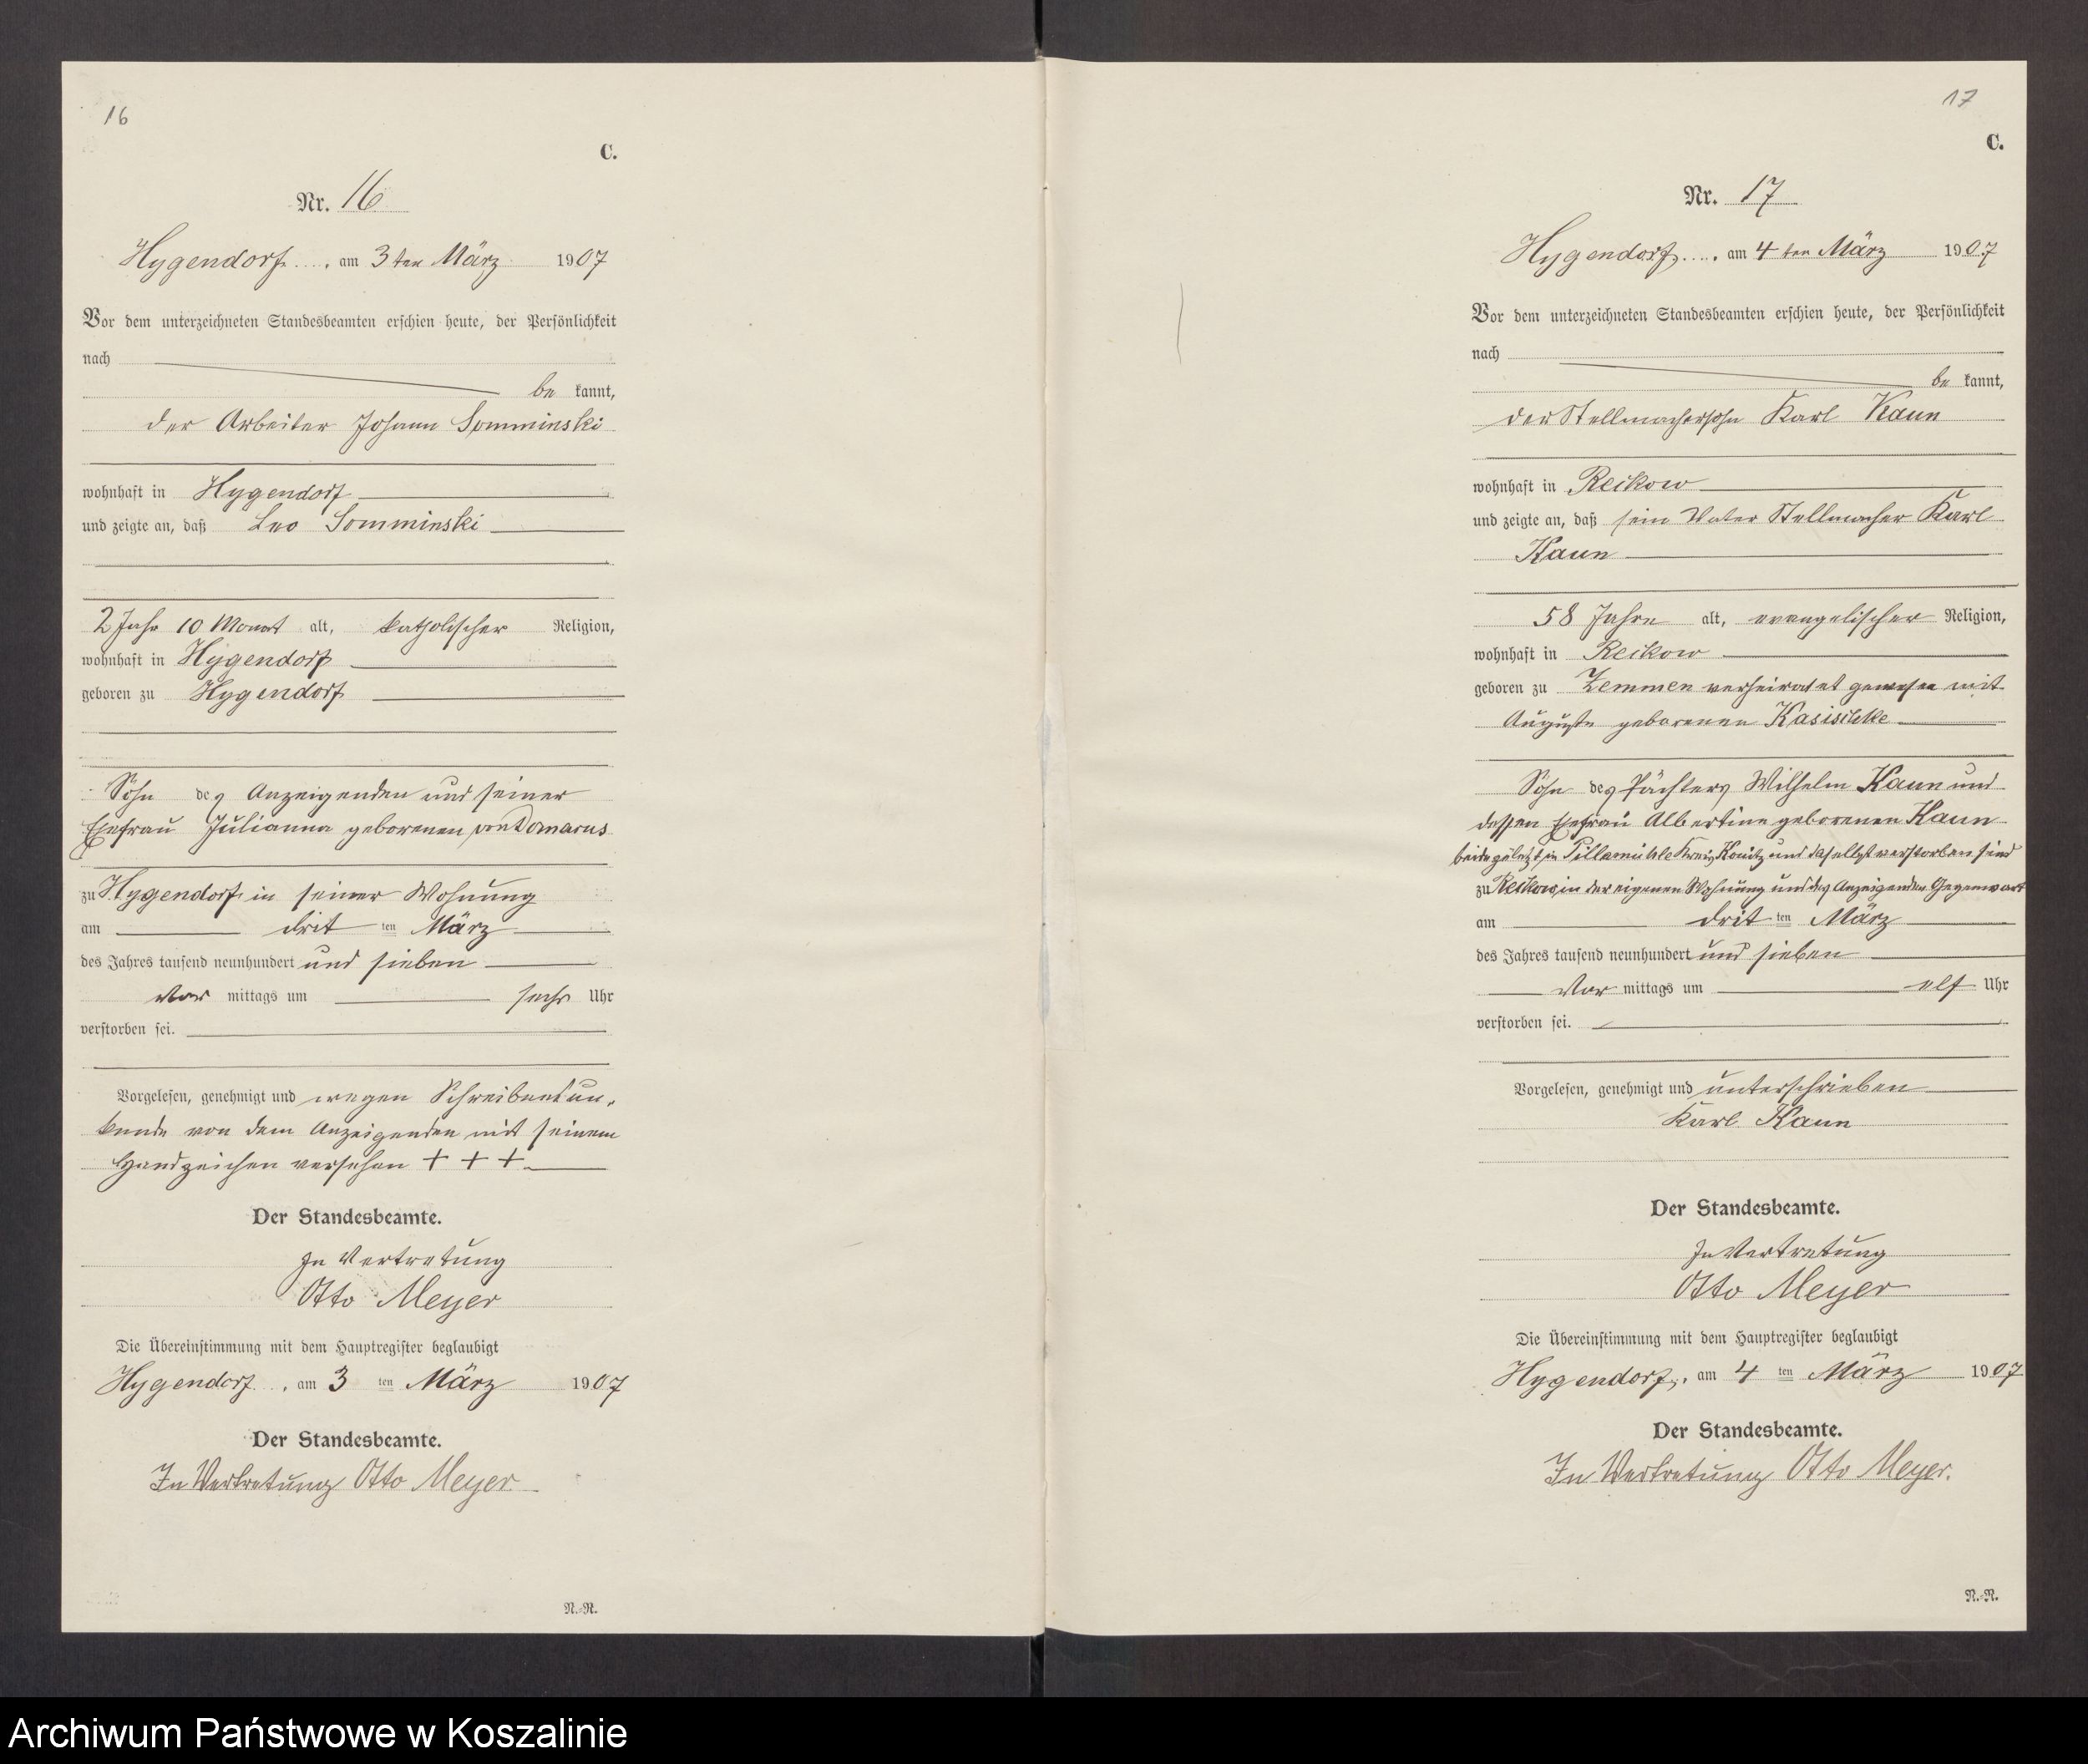 16
C.
Nr. 16
Hygendorf, am 3ten März 1907
Vor dem unterzeichneten Standesbeamten erschien heute, der Persönlichkeit
nach
be kannt,
der Arbeiter Johann Somminski
wohnhaft in Hygendorf
und zeigte an, daß Leo Somminski
2 Jahr 10 Monat alt, katholischer Religion,
wohnhaft in Hygendorf
geboren zu Hygendorf
Sohn des Anzeigenden und seiner
Ehefrau Julianna geborenen von Domarus
zu Hygendorf in seiner Wohnung
am drit ten März
des Jahres tausend neunhundert und sieben
Vor mittags um sechs Uhr
verstorben sei.
Vorgelesen, genehmigt und wegen Schreibensun-
kunde von dem Anzeigenden mit seinem
Handzeichen versehen + + +
Der Standesbeamte.
In Vertretung
Otto Meyer
Die Übereinstimmung mit dem Hauptregister beglaubigt
Hygendorf, am 3 ten März 1907
Der Standesbeamte.
In Vertretung Otto Meyer
N.-R.
17
C.
Nr. 17
Hygendorf, am 4ten März 1907
Vor dem unterzeichneten Standesbeamten erschien heute, der Persönlichkeit
nach
be kannt,
der Stellmachersohn Karl Kaun
wohnhaft in Reikow
und zeigte an, daß sein Vater Stellmacher Karl
Kaun
58 Jahre alt, evangelischer Religion,
wohnhaft in Reikow
geboren zu Zemmen verheiratet gewesen mit
Auguste geborenen Kasischke
Sohn des Pächters Wilhelm Kaun und
dessen Ehefrau Albertine geborenen Kaun
beide zuletzt in Pillamühle Kreis Konitz und daselbst verstorben sind
zu Reikow, in der eigenen Wohnung und des Anzeigenden Gegenwart
am drit ten März
des Jahres tausend neunhundert und sieben
Vor mittags um elf Uhr
verstorben sei.
Vorgelesen, genehmigt und unterschrieben
Karl Kaun
Der Standesbeamte.
In Vertretung
Otto Meyer
Die Übereinstimmung mit dem Hauptregister beglaubigt
Hygendorf, am 4 ten März 1907
Der Standesbeamte.
In Vertretung Otto Meyer.
N.-R.
Archiwum Państwowe w Koszalinie